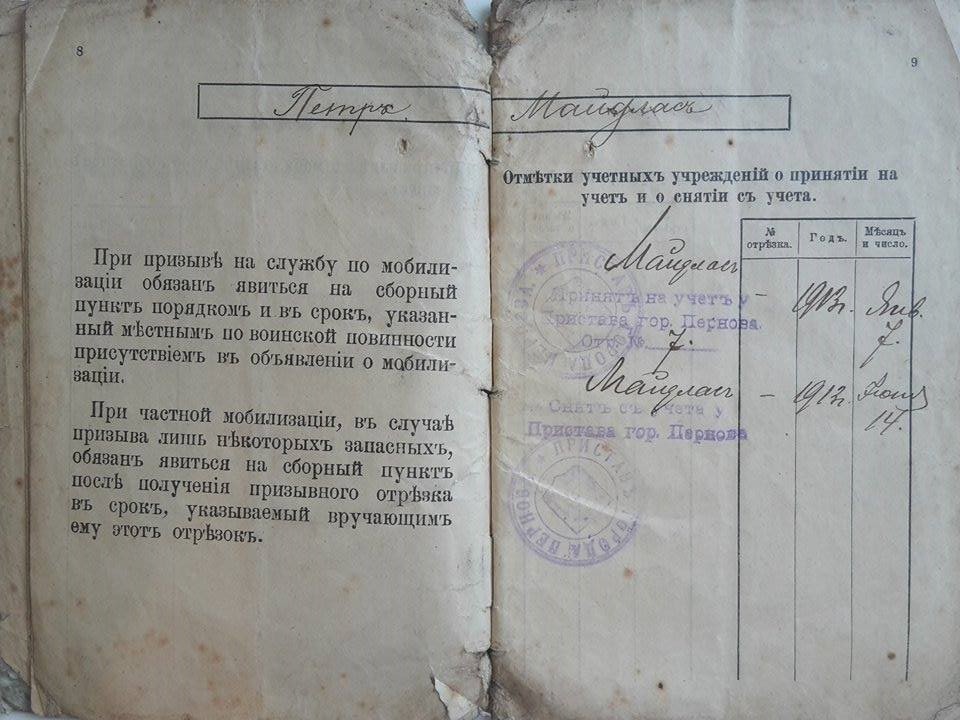 8
Петръ
При призывѣ на службу по мобили-
заціи обязанъ явиться на сборный
пунктъ порядкомъ и въ срокъ, указан-
ный мѣстнымъ по воинской повинности
присутствіемъ въ объявленіи о мобили-
заціи.
При частной мобилизаціи, въ случаѣ
призыва лишь нѣкоторыхъ запасныхъ,
обязанъ явиться на сборный пунктъ
послѣ полученія призывного отрѣзка
въ срокъ, указываемый вручающимъ
ему этотъ отрѣзокъ.
9
Майдласъ
Отмѣтки учетныхъ учрежденій о принятіи на
учетъ и о снятіи съ учета.
№ отрѣзка. Годъ. Мѣсяцъ и число.
Майдласъ
Принятъ на учетъ у
Пристава гор. Пернова.
Отр. № 7.
– 1913г. Янв. 7.
Майдласъ
Снятъ съ учета у
Пристава гор. Пернова
– 1913г. 14.
ПРИСТАВЪ ГОРОДА ПЕРНОВА